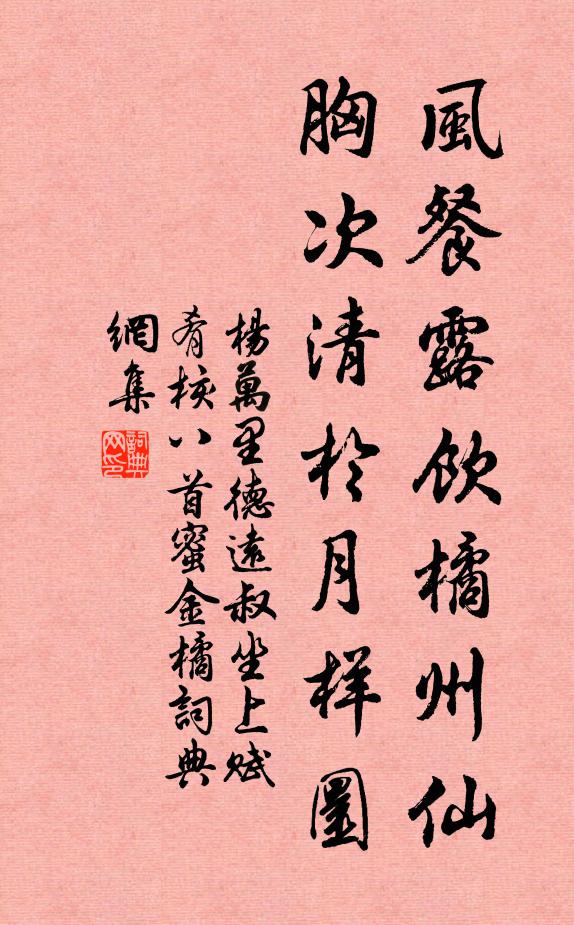 風餐露飲橘州仙
胸次清於月樣圓
楊萬里德遠叔坐上賦
肴核八首蜜金橘詞典
網集
詞典
网印